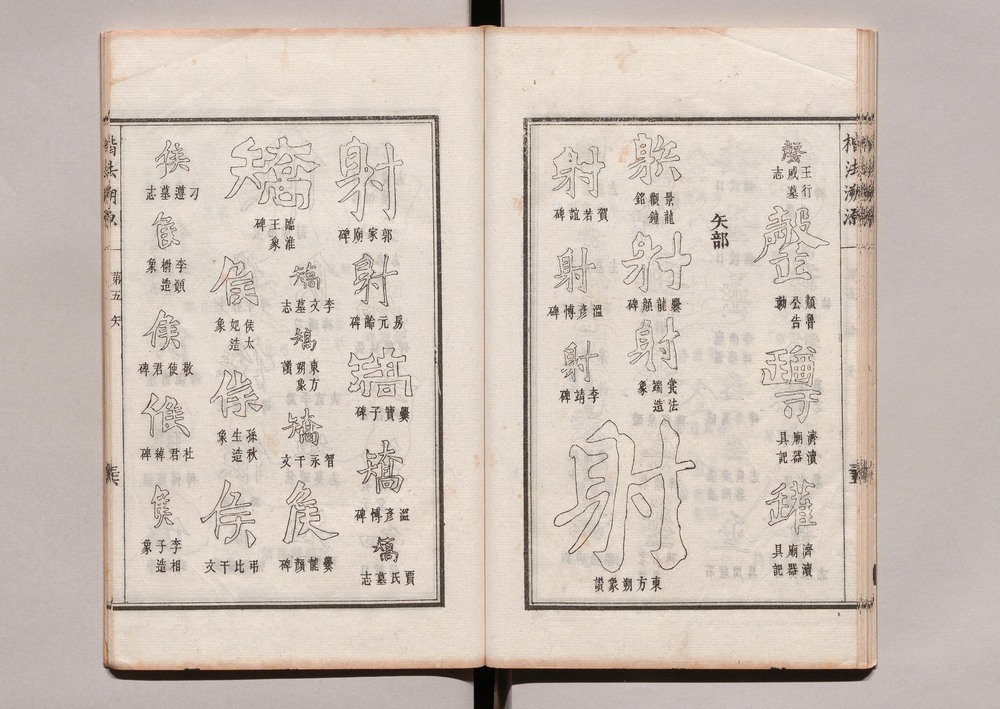 楷法溯源
王行威墓志
顏魯公告
勳
濟瀆廟器具記
罐
濟瀆廟器具記
矢部
射
景龍觀鐘銘
射
爨龍顏碑
射
裳法端造象
射
東方朔象讚
射
賀若誼碑
射
溫彥博碑
射
李靖碑
射
郭家廟碑
射
房元齡碑
矯
爨寶子碑
矯
溫彥博碑
矯
賈氏墓志
矯
臨淮王象碑
矯
李文墓志
矯
東方朔象讚
矯
智永千文
侯
爨龍顏碑
侯
侯太妃造象
侯
孫秋生造象
侯
弔比干文
侯
刁遵墓志
侯
李㯹造象
侯
敬使君碑
侯
杜君綽碑
侯
李子相造象
楷法溯源
第五
矢